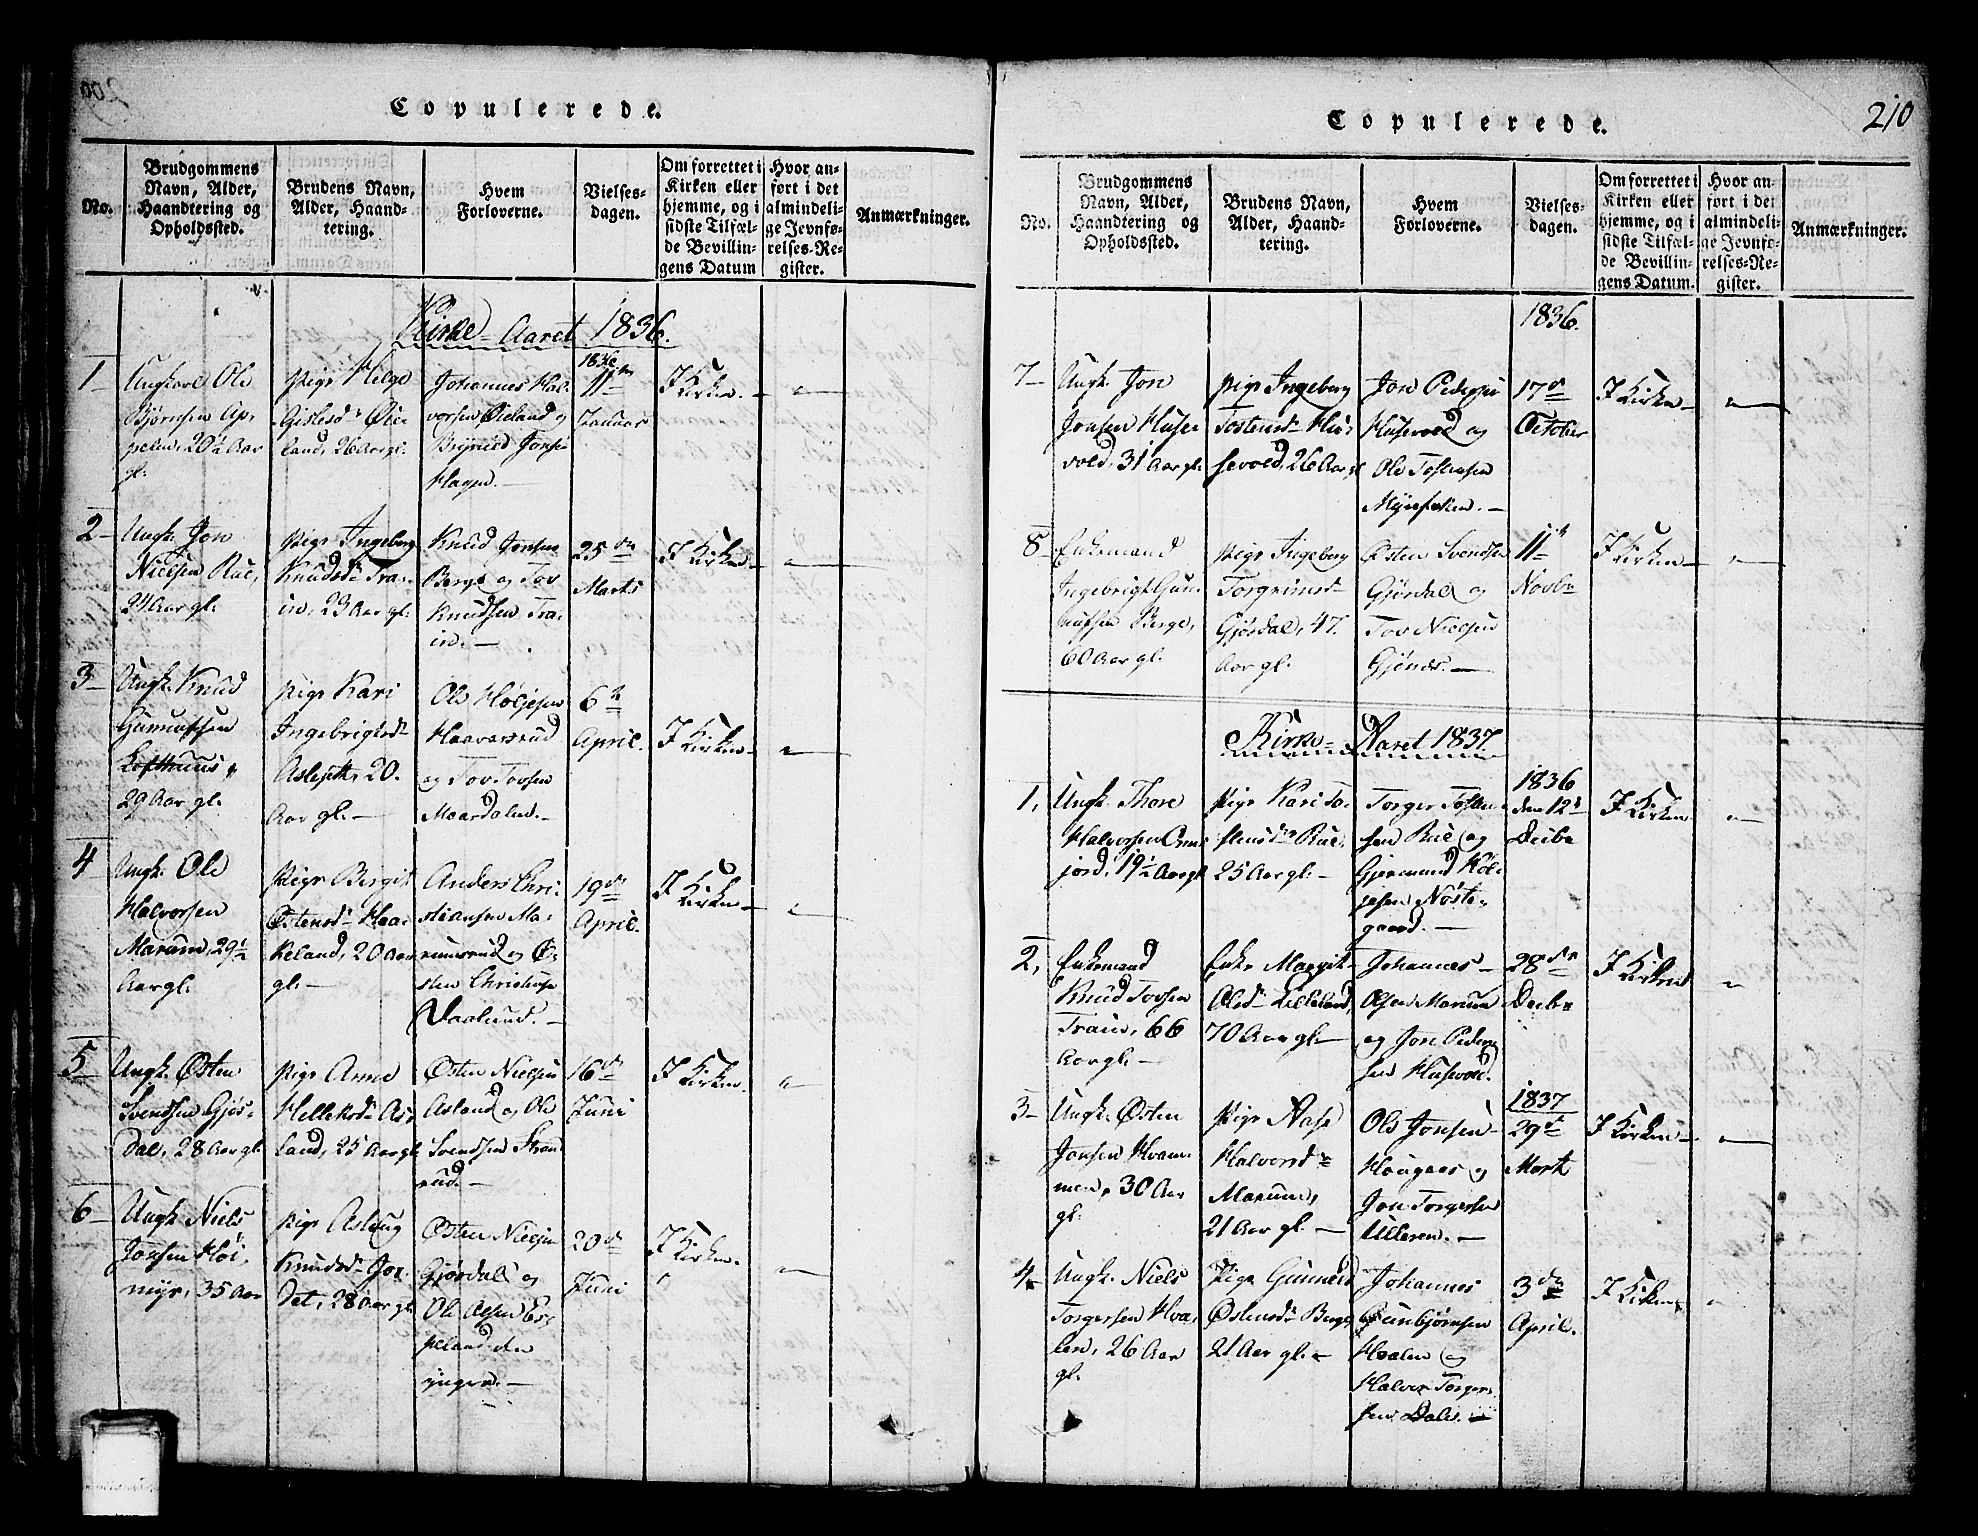 Copulerede.
No.
Brudgommens Navn, Alder, Haandtering og Opholdssted.
Brudens Navn, Alder, Haandtering.
Hvem Forloverne.
Vielsesdagen.
Om forrettet i Kirken eller hjemme, og i sidste Tilfælde Bevillingens Datum
Hvor anført i det almindelige Jevnførelses-Register.
Anmærkninger.
Kirke-Aaret 1836.
1
Ungkarl Ole
Bjørnsen
20½ Aar
gl.
Pige Helge
Gislesd. Øie
land, 26 Aar gl.
Johannes Hal
vorsen Øieland og
Jonsen
Hagen.
1836
11te
Januar
I Kirken.
2
Ungk. Jon
Nielsen Rue,
24 Aar gl.
Pige Ingeborg
Knudsd. Tra
in, 23 Aar gl.
Knud Jonsen
Berge og Tov
Knudsen Tra
in.
25de
Marts
I Kirken
3
Ungk. Knud
Gunnufsen
Lofthuus,
29 Aar gl.
Pige Kari
Ingebrigtsd.
20.
Aar gl.
Ole Høljesen
Haavarsrud
og Tov Tovsen
Maardalen.
6te
April.
I Kirken
4
Ungk. Ole
Halvorsen
Marum, 29½
Aar gl.
Pige Bergit
Østensd. Haa
keland, 20 Aar
gl.
Anders Chri
stiansen Ma
rumsrud og Ø
sten Christophe
19de
April.
I Kirken
5
Ungk. Østen
Svendsen Gjøs
dal, 28 Aar gl.
Pige Anne
Helleksd. As
land, 25 Aar gl.
Østen Nielsen
Asland og Ole
Svendsen Stran
rud.
16de
Juni
I Kirken.
6
Ungk. Niels
Jonsen Høi
myr, 35 Aar
Pige Aslaug
Knudsd. Jor
det, 28 Aar gl.
Østen Nielsen
Gjøsdal og
Ole
peland den
yngere.
20de
Juni
I Kirken.
Copulerede.
210
No.
Brudgommens Navn, Alder, Haandtering og Opholdssted.
Brudens Navn, Alder, Haandtering.
Hvem Forloverne.
Vielsesdagen.
Om forrettet i Kirken eller hjemme, og i sidste Tilfælde Bevillingens Datum.
Hvor anført i det almindelige Jevnførelses-Register.
Anmærkninger.
1836.
7
Ungk. Jon
Jonsen Huse
vold, 31 Aar gl.
Pige Ingeborg
Tostensd. Hu
sevold, 26 Aar gl
Jon Pedersen
Husevold og
Ole Tostensen
17de
October
I Kirken
8
Enkemand
Ingebrigt Gun
nufsen Berge,
60 Aar gl.
Pige Ingeborg
Torgrimsd.
Gjøsdal, 47.
Aar gl.
Østen Svendsen
Gjøsdal og
Tov Nielsen
Gjønes.
11te
Novbr
I Kirken
Kirke-Aaret 1837
1,
Ungk. Thore
Halvorsen
jord, 19½ Aar gl
Pige Kari To
stensd. Rue,
25 Aar gl.
Torger Tosten
sen Rue og
Gjermund Høl
jesen Nøste
gaard.
1836
den 12te
Decbr
I Kirken
2,
Enkemand
Knud Tovsen
Train, 66
Aar gl.
Enke Margit
Olsd. Lilleland,
70 Aar gl.
Johannes
Olsen Marum
og Jon Peder
sen Husevold.
28de
Decbr
I Kirken
3
Ungk. Østen
Jonsen Kvam
men, 30 Aar
gl.
Pige Aase
Halvorsd.
Marum,
21 Aar gl.
Ole Jonsen
Haugaas og
Jon Torgersen
Ulleren.
1837
29de
Marts
I Kirken
4
Ungk. Niels
Torgersen Hva
len, 26 Aar
gl.
Pige Gunnild
Østensd. Berge,
21 Aar gl.
Johannes
Gunbjørnsen
Haalen og
Halvor Torger
sen Dale.
3die
April.
I Kirken